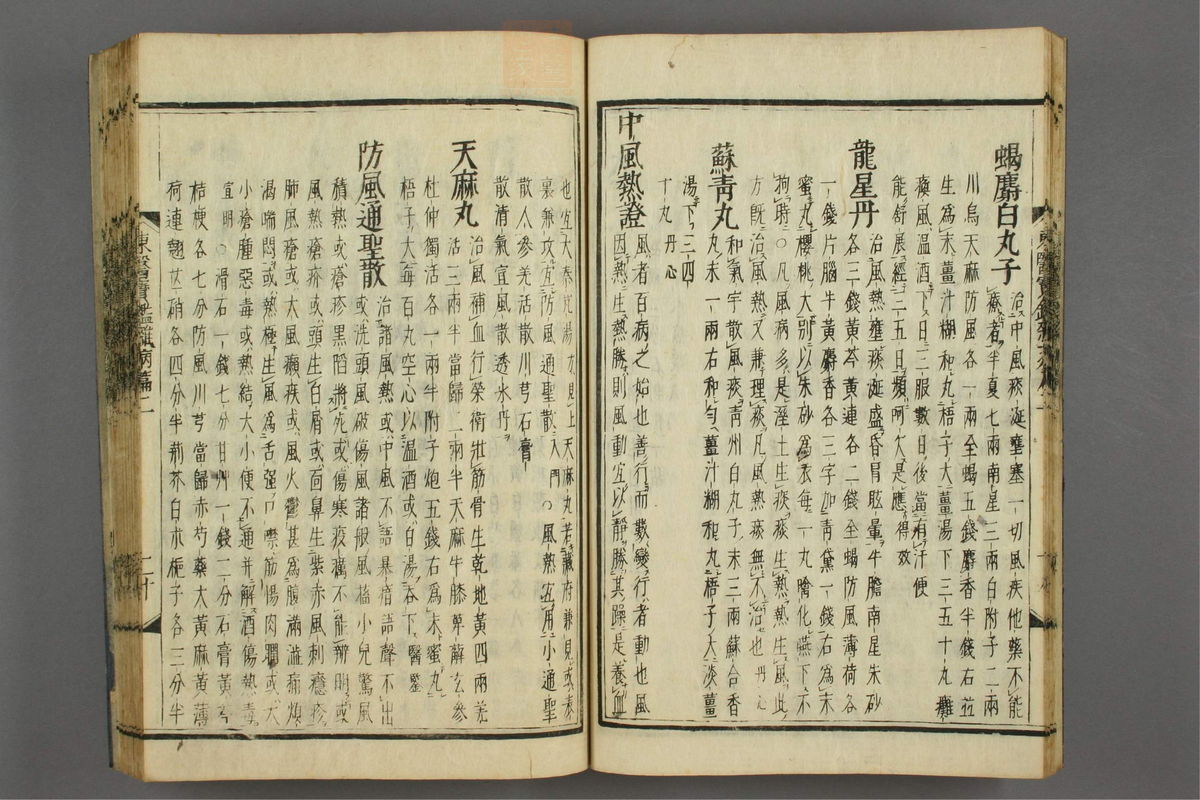 蝎麝白丸子
治中風痰涎壅塞一切風疾他藥不能
療者半夏七兩南星三兩白附子二兩
川烏天麻防風各一兩全蝎五錢麝香半錢右並
生爲末薑汁糊和丸梧子大薑湯下三五十丸癱
瘓風溫酒下日二三服數日後當有汗便
能舒展經三五日頻呵欠是應得效
龍星丹
治風熱壅痰涎盛昏冒眩暈牛膽南星朱砂
各三錢黃芩黃連各二錢全蝎防風薄荷各
一錢片腦牛黃麝香各三字加靑黛一錢右爲末
蜜丸櫻桃大別以朱砂爲衣每一丸噙化嚥下不
拘時○凡風病多是溼土生痰痰生熱熱生風此
方旣治風熱又兼理痰凡風熱痰無不治也丹心
蘇靑丸
和氣宇散風痰靑州白丸子末三兩蘇合香
丸末一兩右和勻薑汁糊和丸梧子大淡薑
湯下三四
十丸丹心
中風熱證
風者百病之始也善行而數變行者動也風
因熱生熱勝則風動宜以靜勝其躁是養血
也宜大秦艽湯方見上天麻丸若藏府兼見或表
裏兼攻宜防風通聖散入門○風熱宜用小通聖
散人參羌活散川芎石膏
散淸氣宣風散透氷丹
天麻丸
治風補血行榮衛壯筋骨生乾地黃四兩羌
活三兩半當歸二兩半天麻牛膝萆薢玄參
杜仲獨活各一兩半附子炮五錢右爲末蜜丸
梧子大每百丸空心以溫酒或白湯呑下醫鑒
防風通聖散
治諸風熱或中風不語暴瘖語聲不出
或洗頭風破傷風諸般風搐小兒驚風
積熱或瘡疹黑陷將死或傷寒疫癘不能辨明或
風熱瘡疥或頭生白屑或面鼻生紫赤風刺癮疹
肺風瘡或大風癩疾或風火鬱甚爲腹滿澁痛煩
渴喘悶或熱極生風爲舌强口噤筋惕肉瞤或大
小瘡腫惡毒或熱結大小便不通幷解酒傷熱毒
宣明○滑石一錢七分甘艸一錢二分石膏黃芩
桔梗各七分防風川芎當歸赤芍藥大黃麻黃薄
荷連翹芒硝各四分半荊芥白朮梔子各三分半
東醫寶鑑雜病篇二
二十